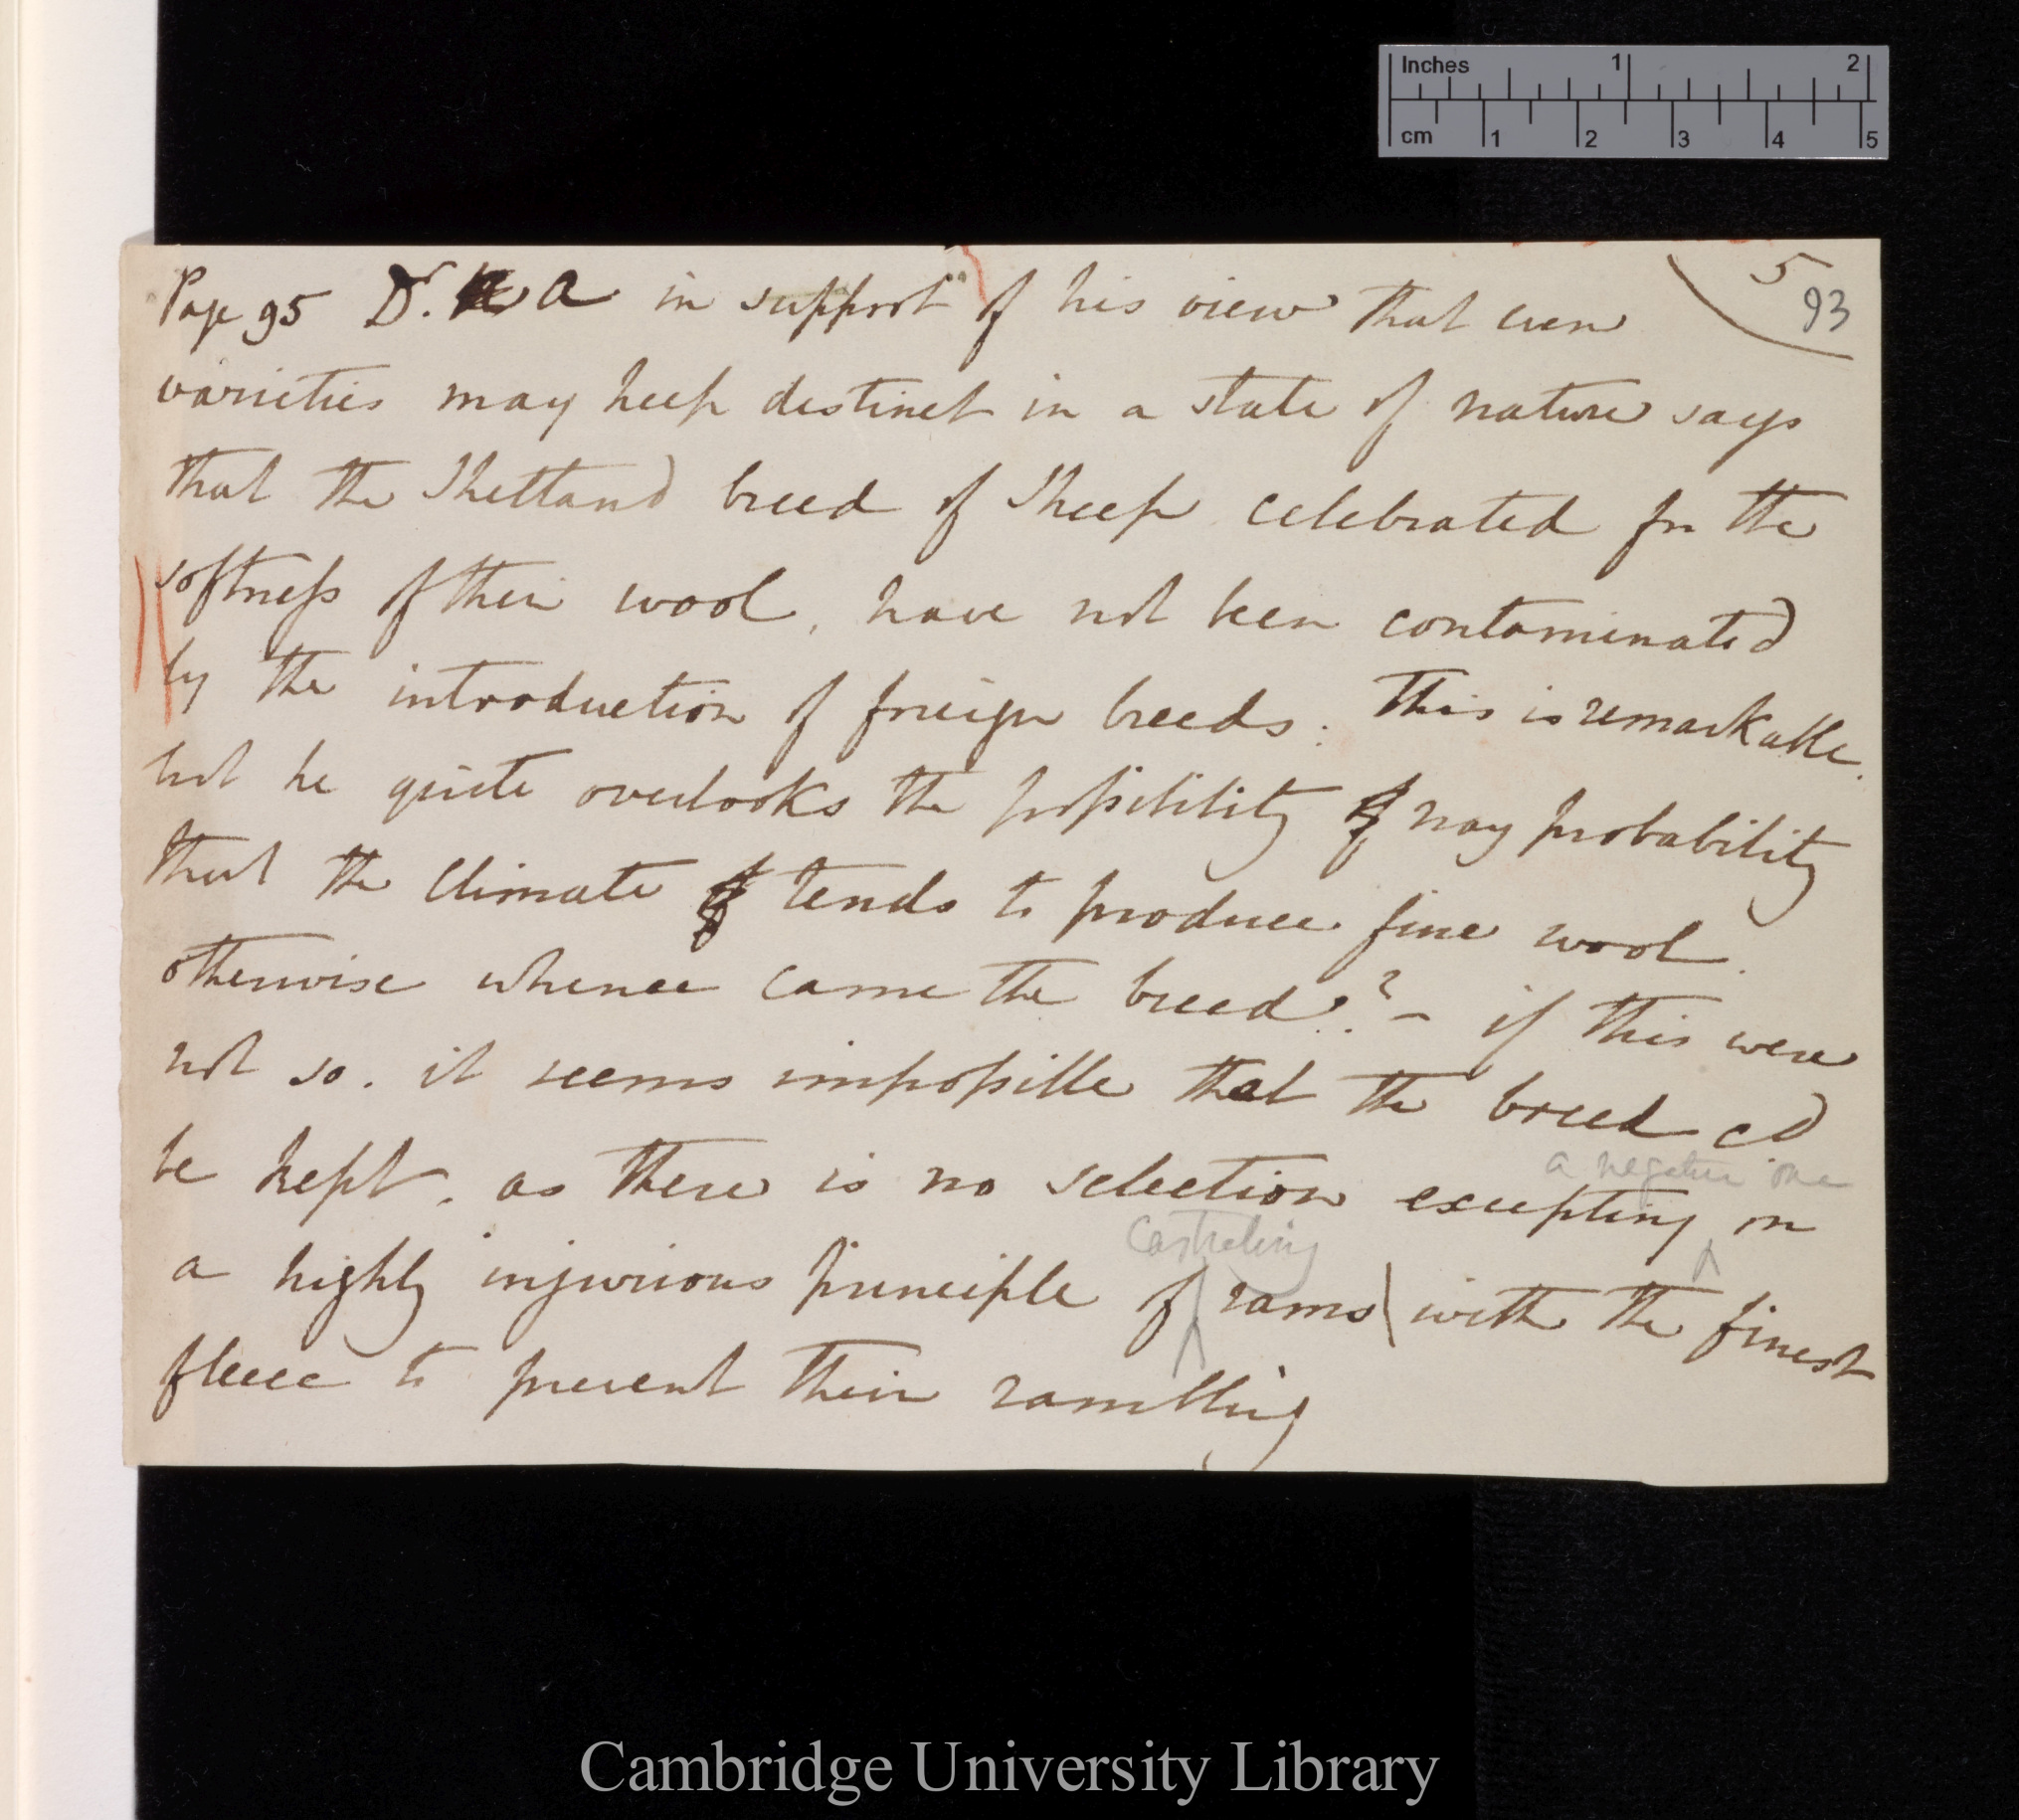 Inches 1 2
cm 1 2 3 4 5
5
93
Page 95 Dr. A in support of his view that even
varieties may keep distinct in a state of nature says
that the Shetland breed of Sheep celebrated for the
softness of their wool, have not been contaminated
by the introduction of foreign breeds: This is remarkable.
but he quite overlooks the possibility of nay probability
that the climate tends to produce fine wool.
otherwise whence came the breed? – if this were
not so. it seems impossible that the breed cd
a negative one
be kept. as there is no selection excepting on
castrating
a highly injurious principle of rams with the finest
fleece to prevent their rambling
Cambridge University Library